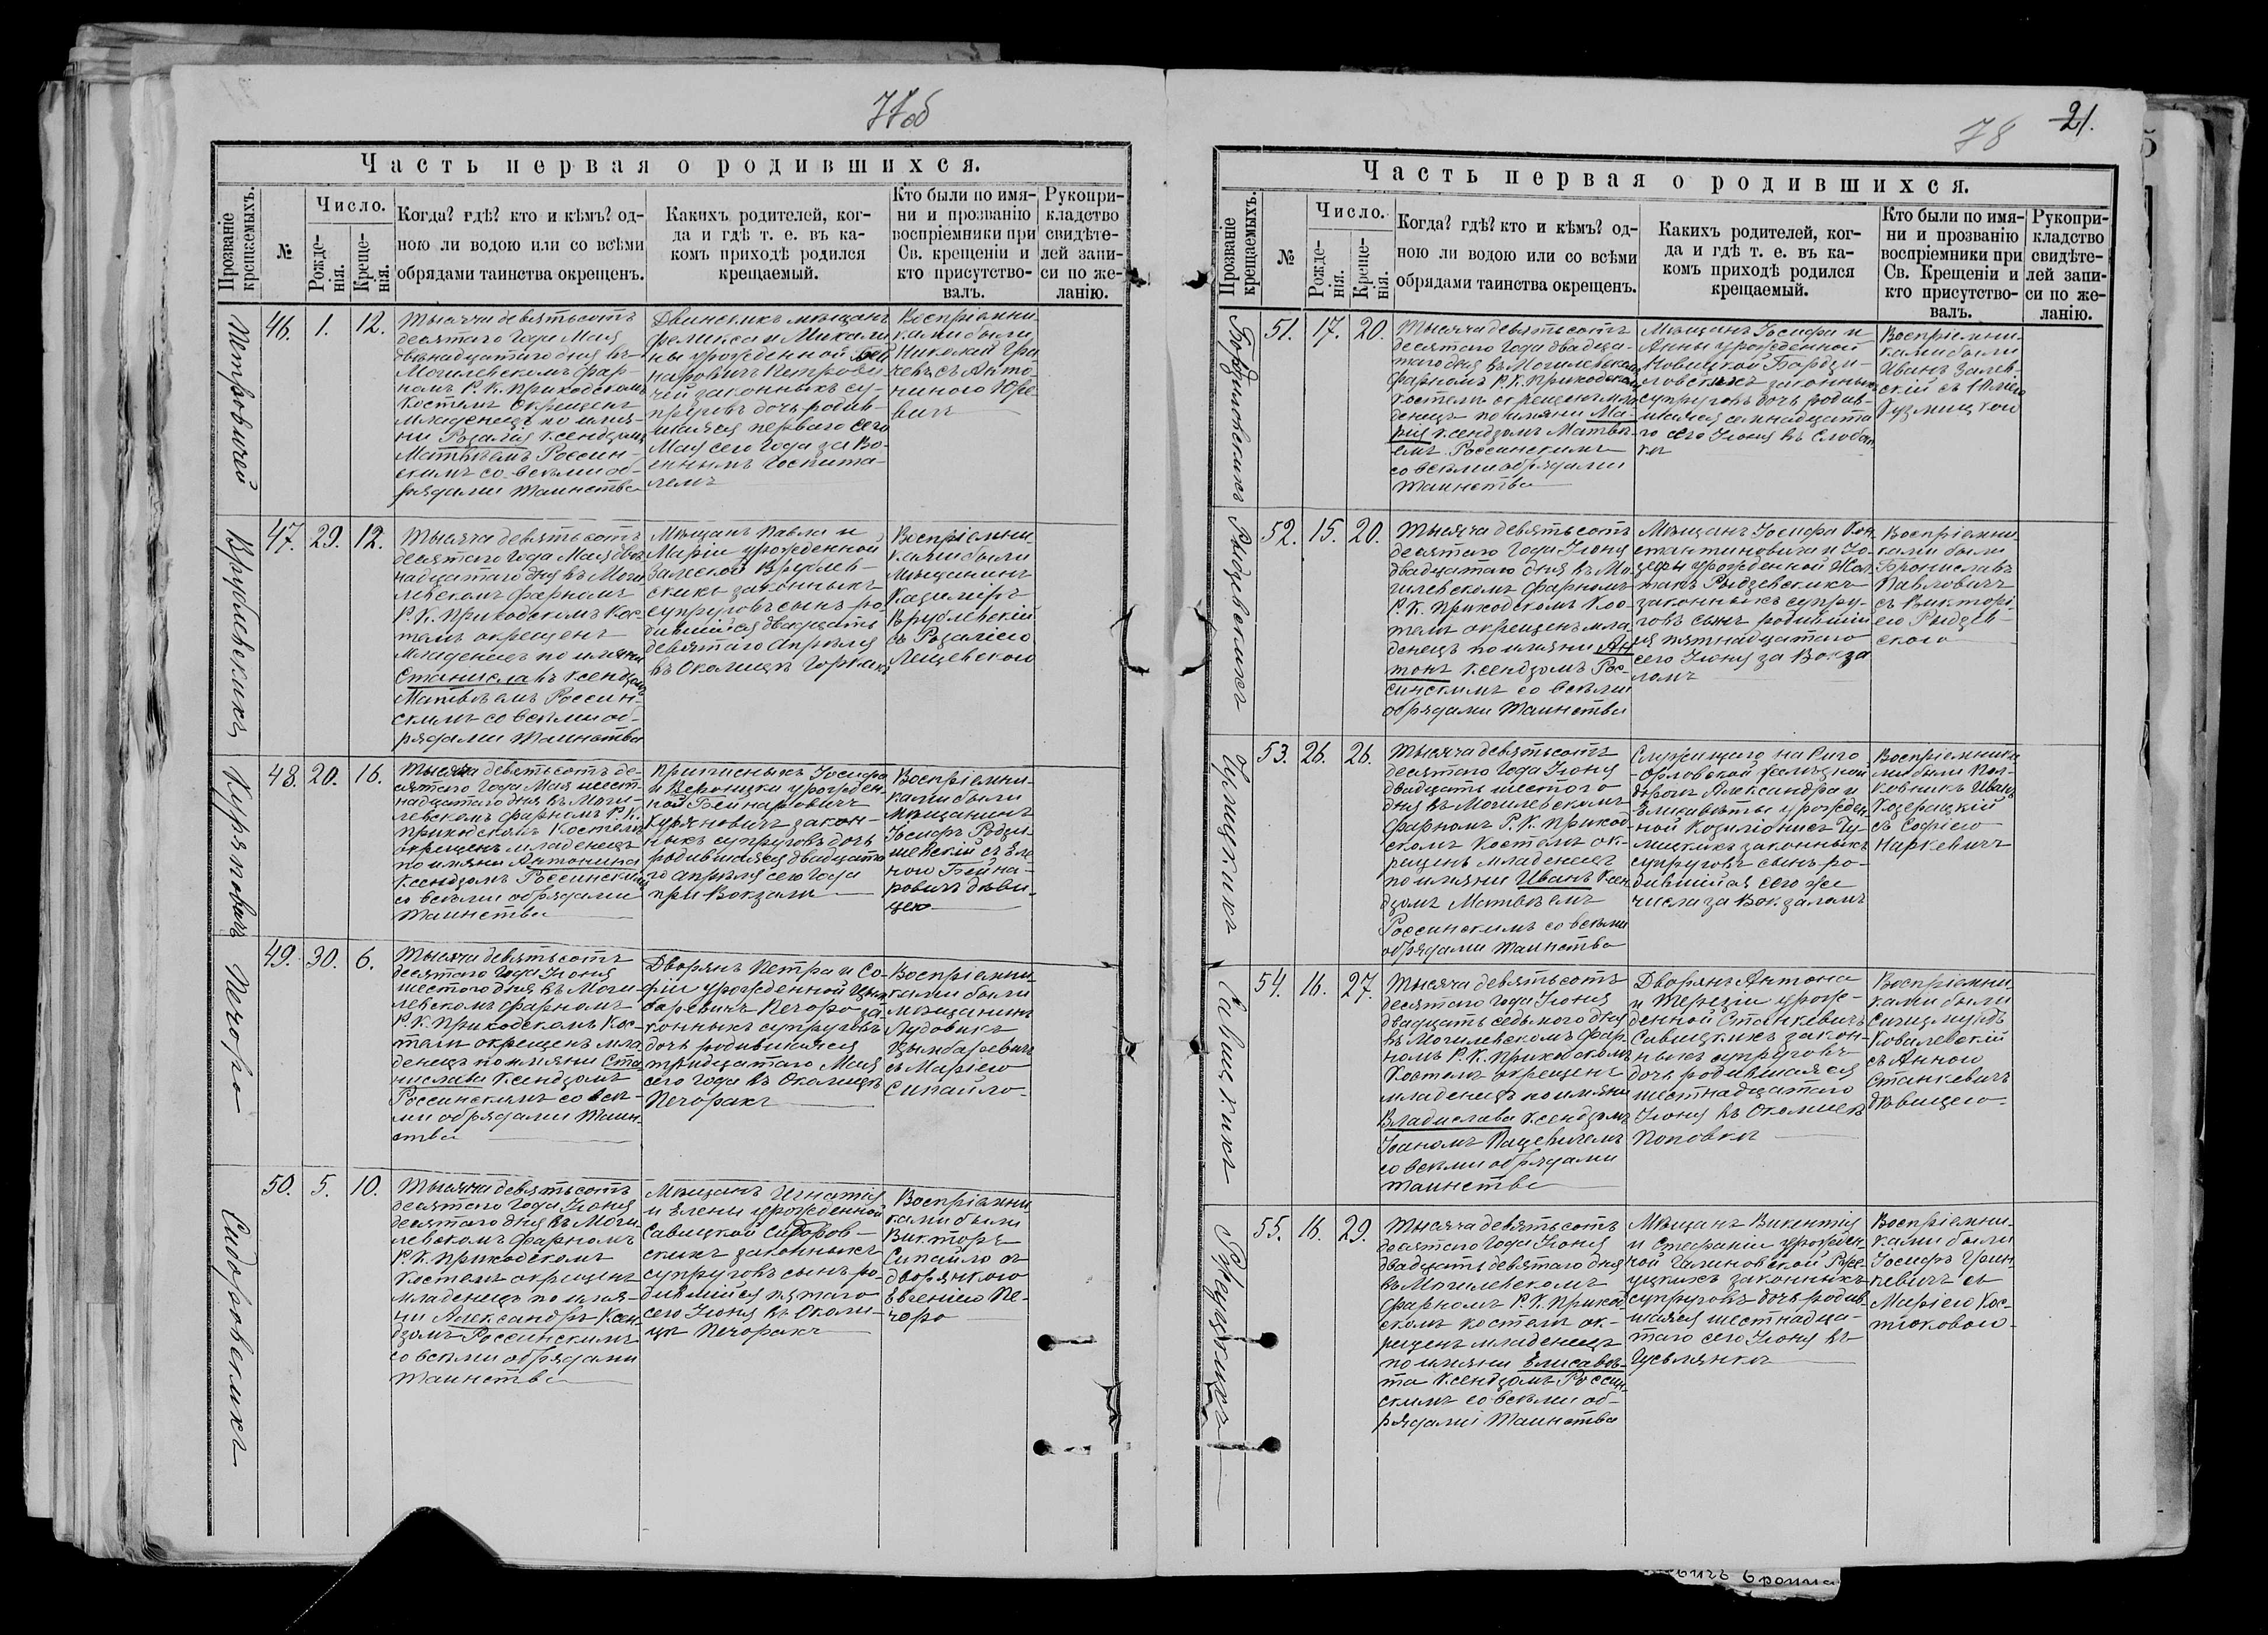 77об
Часть первая о родившихся.
Прозваніе крещаемыхъ.
№
Число.
Рожде-
нія.
Креще-
нія.
Когда? гдѣ? кто и кѣмъ? од-
ною ли водою или со всѣми
обрядами таинства окрещенъ.
Какихъ родителей, ког-
да и гдѣ т. е. въ ка-
комъ приходѣ родился
крещаемый.
Кто были по имя-
ни и прозванію
воспріемники при
Св. крещеніи и
кто присутство-
валъ.
Рукопри-
кладство
свидѣте-
лей запи-
си по же-
ланію.
Петровичей
46. 1. 12.
Тысяча девятьсотъ
десятого Года Мая
двѣнадцатого дня въ
Могилевскомъ фар-
номъ Р. К. Приходскомъ
Костелѣ окрещенъ
младенецъ по имя-
ни Розалія Ксендзомъ
Маттѣемъ Россин-
скимъ со всѣми об-
рядами Таинства
Двинскихъ мѣщанъ
Феликса и Михали
ны урожденной Бей
наровичъ Петрови-
чей законныхъ су-
пруговъ дочь родив-
шаяся перваго сего
Мая сего Года за Во-
еннымъ Госпита-
лемъ
Воспріемни-
ками были
Николай Гри
невъ съ Анто-
ниною Юре-
вичъ
Врублевскихъ
47. 29. 12.
Тысяча девятьсотъ
десятого Года Мая две
надцатаго дня въ Моги
левскомъ фарномъ
Р. К. Приходскомъ Кос-
телѣ окрещенъ
младенецъ по имяни
Станиславъ Ксендзомъ
Матвѣемъ Россин-
скимъ со всѣми об-
рядами Таинства
Мѣщанъ Павла и
Маріи урожденной
Залеской Врублев-
скихъ законныхъ
супруговъ сынъ ро-
дившійся двадцать
девятаго Апрѣля
въ Околицѣ Горкахъ
Воспріемни
ками были
Мѣщанинъ
Казимиръ
Врублевскій
съ Розаліею
Лещевскою
Куряновичъ
48. 20. 16.
Тысяча девятьсотъ де-
сятого Года Мая шест-
надцатаго дня въ Моги-
левскомъ фарномъ Р. К.
приходскомъ Костелѣ
окрещенъ младенецъ
по имяни Антонина
Ксендзомъ Россинскимъ
со всѣми обрядами
Таинства
Приписныхъ Іосифа
и Вероники урожден
ной Бейнаровичъ
Куряновичъ закон-
ныхъ супруговъ дочь
родившаяся двадцата
го Апрѣля сего Года
при Вокзалѣ
Воспріемни-
ками были
Мѣщанинъ
Іосифъ Родзи-
шевскій съ Еле
ною Бейна-
ровичъ дѣви-
цею
Печоро
49. 30. 6.
Тысяча девятьсотъ
десятого Года Іюня
шестого дня въ Моги-
левскомъ фарномъ
Р. К. Приходскомъ Кос-
телѣ окрещенъ мла
денецъ по имяни Ста
нислава Ксендзомъ
Россинскимъ со всѣ-
ми обрядами Таин-
ства
Дворянъ Петра и Со-
фіи урожденной Цым
баревичъ Печоро за-
конныхъ супруговъ
дочь родившаяся
тридцатаго Мая
сего Года въ Околицѣ
Печорахъ
Воспріемни-
ками были
мѣщанинъ
Людовикъ
Цымбаревичъ
съ Маріею
Сипайло-
Сидоровскихъ
50. 5. 10.
Тысяча девятьсотъ
десятого Года Іюня
десятого дня въ Моги-
левскомъ фарномъ
Р. К. Приходскомъ
Костелѣ окрещенъ
младенецъ по имя-
ни Александръ Ксен-
дзомъ Россинскимъ
со всѣми обрядами
Таинства
Мѣщанъ Игнатія
и Елены урожденной
Савицкой Сидоров-
скихъ законныхъ
супруговъ сынъ ро-
дившійся пятаго
сего Іюня въ Околи-
цѣ Печорахъ
Воспріемни-
ками были
Викторъ
Сипайло съ
дворянкою
Евгеніею Пе-
чоро
78 21.
Часть первая о родившихся.
Прозваніе крещаемыхъ.
№
Число.
Рожде-
нія.
Креще-
нія.
Когда? гдѣ? кто и кѣмъ? од-
ною ли водою или со всѣми
обрядами таинства окрещенъ.
Какихъ родителей, ког-
да и гдѣ т. е. въ ка-
комъ приходѣ родился
крещаемый.
Кто были по имя-
ни и прозванію
воспріемники при
Св. Крещеніи и
кто присутство-
валъ.
Рукопри-
кладство
свидѣте-
лей запи-
си по же-
ланію.
Бордзиловскихъ
51. 17. 20.
Тысяча девятьсотъ
десятого Года двадца-
таго дня въ Могилевскомъ
фарномъ Р. К. Приходскомъ
Костелѣ окрещенъ мла
денецъ по имяни Ма-
рія Ксендзомъ Матвѣ-
емъ Россинскимъ
со всѣми обрядами
Таинства
Мѣщанъ Іосифа и
Анны урожденной
Новицкой Бордзи-
ловскихъ законныхъ
супруговъ дочь родив-
шаяся семнадцата
го сего Іюня въ Слобод
кѣ
Воспріемни-
ками были
Иванъ Залев-
скій съ Юліею
Кузмицкою
Рыдзевскихъ
52. 15. 20.
Тысяча девятьсотъ
десятаго Года Іюня
двадцатаго дня въ Мо-
гилевскомъ фарномъ
Р. К. Приходскомъ Кос-
телѣ окрещенъ мла
денецъ по имяни Ан
тонъ Ксендзомъ Рос-
синскимъ со всѣми
обрядами Таинства
Мѣщанъ Іосифа Кон
стантиновича и Іо-
зефы урожденной Жол
такъ Рыдзевскихъ
законныхъ супру-
говъ сынъ родившій
ся пятнадцатаго
сего Іюня за Вокза
ломъ
Воспріемни-
ками были
Брониславъ
Павловичъ
съ Викторі-
ею Рыдзев-
скою
53. 26. 26.
Тысяча девятьсотъ
десятаго Года Іюня
двадцать шестого
дня въ Могилевскомъ
фарномъ Р. К. Приход-
скомъ Костелѣ ок-
рещенъ младенецъ
по имяни Иванъ Ксен
дзомъ Матвѣемъ
Россинскимъ со всѣми
обрядами Таинства
Служащаго на Риго
-Орловской желѣзной
дорогѣ Александра и
Елисаветы урожден
ной
законныхъ
супруговъ сынъ ро-
дившійся сего же
числа за Вокзаломъ
Воспріемника
ми были Пол-
ковникъ Иванъ
съ Софіею
Савицкихъ
54. 16. 27.
Тысяча девятьсотъ
десятаго Года Іюня
двадцать седьмого дня
въ Могилевскомъ фар-
номъ Р. К. Приходскомъ
Костелѣ окрещенъ
младенецъ по имяни
Владислава Ксендзомъ
Іоаномъ Пацевичемъ
со всѣми обрядами
Таинства
Дворянъ Антона
и Терезіи урож-
денной Станкевичъ
Савицкихъ закон-
ныхъ супруговъ
дочь родившаяся
шестнадцатаго
Іюня въ Околицѣ
Поповкѣ
Воспріемни
ками были
Сигизмундъ
Ковалевскій
съ Анною
Станкевичъ
дѣвицею-
55. 16. 29.
Тысяча девятьсотъ
десятаго Года Іюня
двадцать девятаго дня
въ Могилевскомъ
фарномъ Р. К. Приход-
скомъ костелѣ ок-
рещенъ младенецъ
по имяни Елисаве-
та Ксендзомъ Россин-
скимъ со всѣми об-
рядами Таинства
Мѣщанъ Викентія
и Стефаніи урожден
ной
законныхъ
супруговъ дочь родив-
шаяся шестнадца-
таго сего Іюня въ
Гуслянкѣ
Воспріемни-
ками были
Іосифъ Грин
кевичъ съ
Маріею Кос-
тюковою-